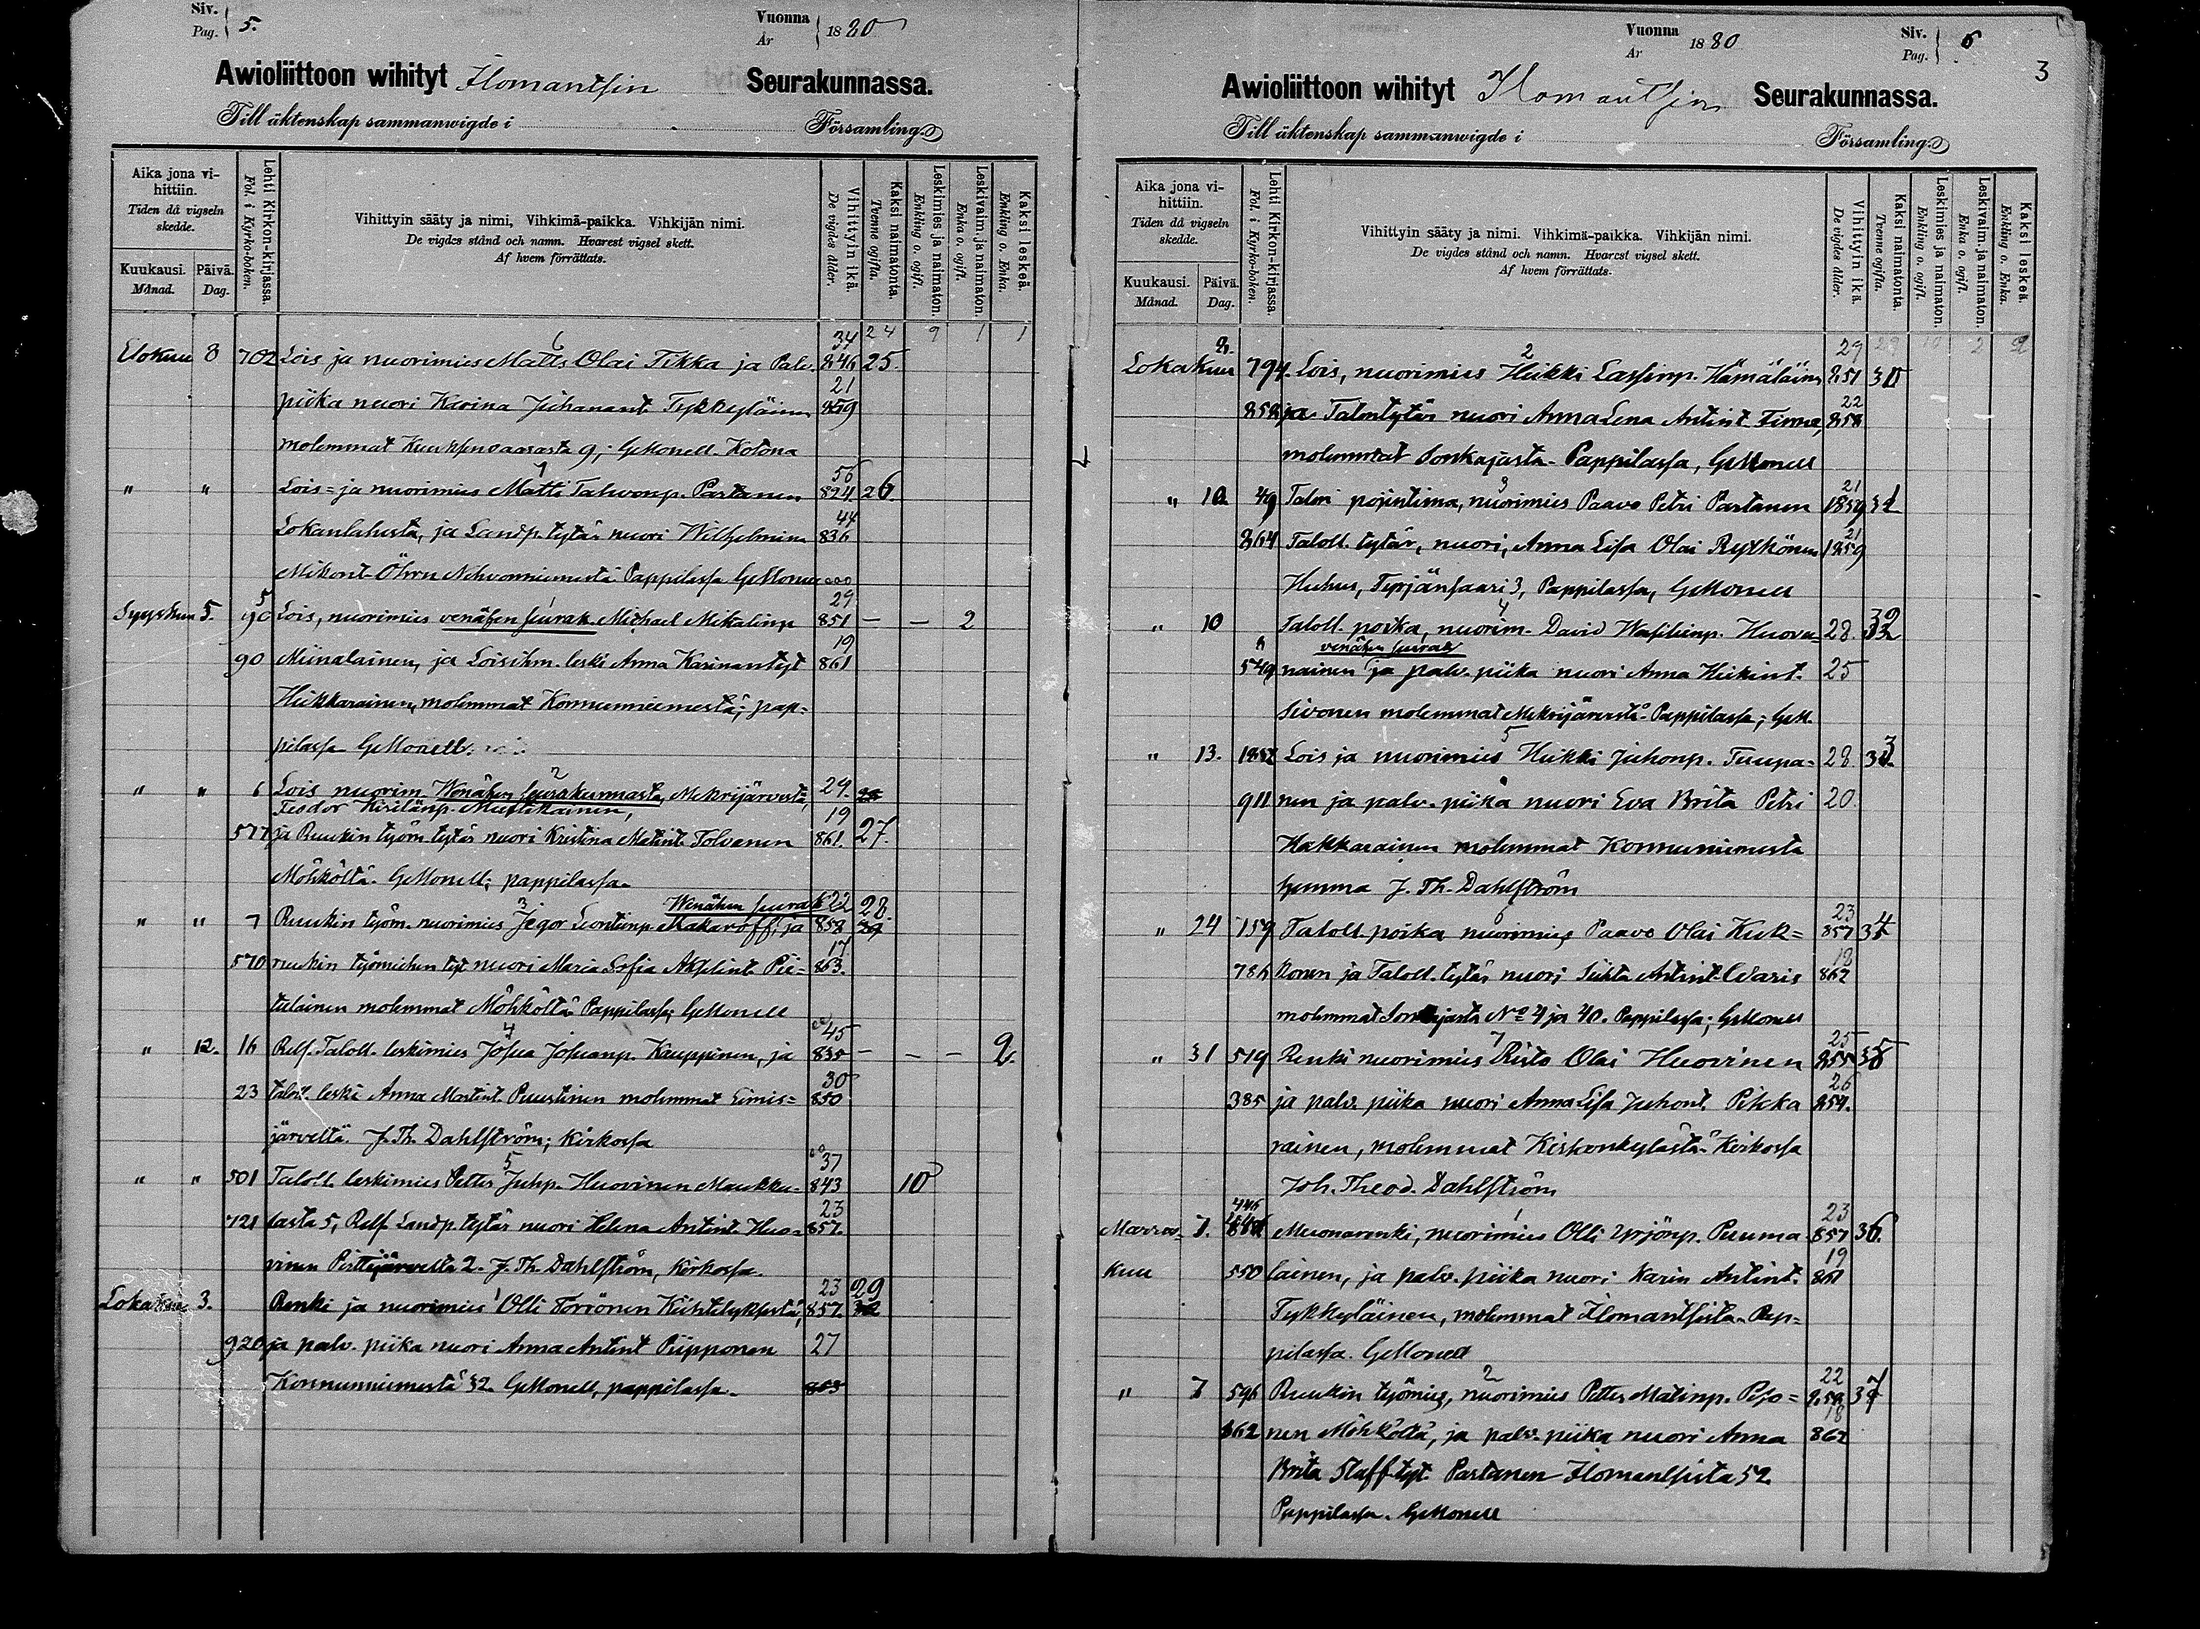 Siv. Pag. 5. Vuonna År 1880
Awioliittoon wihityt Ilomantsin Seurakunnassa.
Till äktenskap sammanwigde i Församling.
Aika jona vihittiin. Tiden då vigseln skedde.
Kuukausi. Månad. Päivä. Dag.
Lehti Kirkon-kirjassa. Fol. i Kyrko-boken.
Vihittyin sääty ja nimi, Vihkimä-paikka. Vihkijän nimi.
De vigdes stånd och namn. Hvarest vigsel skett.
Af hvem förrättats.
Vihittyin ikä. De vigdes ålder.
Kaksi naimatonta. Tvenne ogifta.
Leskimies ja naimaton. Enkling o. ogift.
Leskivaim. ja naimaton. Enka o. ogift.
Kaksi leskeä. Enkling o. Enka.
34 24 9 1 1
6
Elokuu 8 702 Lois ja nuorimies Matts Olai Tikka ja Palv. 846 25.
21
piika nuori Karina Juhanant Tykkyläinen 859
molemmat Kuuksenvaarasta 9; GMonell. Kotona
7 56
" " Lois- ja nuorimies Matti Tahvonp. Partanen 824 26
44
Lokanlahesta, ja Landp. tytär nuori Wilhelmina 836
Mikont. Öhrn Nehvonniemestä Pappilassa GMonell
5 1 29
Syyskuu 5. 90 Lois, nuorimies venähen seurak. Michael Mikalinp 851 — — 2
19
90 Miinalainen, ja Loisihm. leski Anna Karinantyt 861
Hiekkarainen, molemmat Konnunniemestä; pap-
pilassa GMonell.
2
" " 6 Lois nuorim Wenähen Seurakunnasta, Mekrijärvestä, 24.
Teodor Kirilänp. Mustikainen, 19
577 ja Ruukin työm. tytär nuori Kristina Matint. Tolvanen 861. 27.
Möhköltä. GMonell; pappilassa.
3 Wenähen seurak 22 28.
" " 7 Ruukin työm. nuorimies Jegor Leontienp Makaroff; ja 858
17
570 ruukin työmiehen tyt nuori Maria Sofia Akselint Pie- 863.
tulainen molemmat Möhköltä Pappilassa; GMonell
4 45
" 12. 16 Self. Taloll. leskimies Josua Josuanp. Kauppinen, ja 835 — — — 2.
30
23 taloll. leski Anna Martint. Puustinen molemmat Eimis- 850
järveltä. J. Th. Dahlström; Kirkossa
5 37
" " 501 Taloll. leskimies Petter Juhp. Huovinen Maukku- 843 10
23
721 lasta 5, Self Landp. tytär nuori Helena Antint. Huo- 857.
vinen Pirttijärveltä 2. J. Th. Dahlström, Kirkossa.
1 23 29
Lokakuu 3. Renki ja nuorimies Olli Torrönen Kiihtelykfestä, 857
920 ja palv. piika nuori Anna Antint Piipponen 27
Konnunniemestä 32. GMonell, pappilassa. 853
Vuonna År 1880 Siv. Pag. 6
3
Awioliittoon wihityt Ilomantsin Seurakunnassa.
Till äktenskap sammanwigde i Församling.
Aika jona vihittiin. Tiden då vigseln skedde.
Kuukausi. Månad. Päivä. Dag.
Lehti Kirkon-kirjassa. Fol. i Kyrko-boken.
Vihittyin sääty ja nimi. Vihkimä-paikka. Vihkijän nimi.
De vigdes stånd och namn. Hvarest vigsel skett.
Af hvem förrättats.
Vihittyin ikä. De vigdes ålder.
Kaksi naimatonta. Tvenne ogifta.
Leskimies ja naimaton. Enkling o. ogift.
Leskivaim. ja naimaton. Enka o. ogift.
Kaksi leskeä. Enkling o. Enka.
2 29 29 2 2
Lokakuu 794. Lois, nuorimies Heikki Lassinp. Hämäläinen 851 30
22
858 ja Talontytär nuori Anna Lena Antint. Timonen, 858
molemmat Sonkajasta. Pappilassa, GMonell
3 21
" 10. 49 Talon pojintima, nuorimies Paavo Petri Partanen 1859 31
21
864 Taloll. tytär, nuori, Anna Lisa Olai Ryökönen 1859
Huhus, Terjänsaari 3, Pappilassa, GMonell
4
" 10 Taloll. poika, nuorim. David Wasilinp. Huova- 28. 32
" venähen seurak
549 nainen ja palv. piika nuori Anna Heikint. 25
Sivonen molemmat Mekrijärvestä. Pappilassa; GM.
5
" 13. Lois ja nuorimies Heikki Juhonp. Tuupa- 28 33.
911 nen ja palv. piika nuori Eva Brita Petri 20
Hakkarainen molemmat Konnunniemestä
hemma J. Th. Dahlström
6 23
" 24 159 Taloll. poika nuorimies Paavo Olai Kuk- 857 34
18
786 konen ja Taloll. tytär nuori Siitta Antint. Waris 862
molemmat Sonkajasta No 4 ja 40. Pappilassa; GMonell
7 25
" 31 519 Renki nuorimies Risto Olai Huovinen 855 35
26
385 ja palv. piika nuori Anna Lisa Juhont. Pikka 854.
rainen, molemmat Kirkonkylästä. Kirkossa
Joh. Theod. Dahlström
446 1 23
Marras- 7. Muonarenki, nuorimies Olli Yrjönp. Puuma 857 36.
19
kuu 550 lainen, ja palv. piika nuori Karin Antint. 861
Tykkyläinen, molemmat Ilomantsista. Pap-
pilassa. GMonell
2 22
" 7 596 Ruukin työmies, nuorimies Petter Matinp. Peso- 858 37
18
862 nen Möhköltä, ja palv. piika nuori Anna 862
Brita Staff. tyt. Partanen Ilomantsista 52
Pappilassa. GMonell